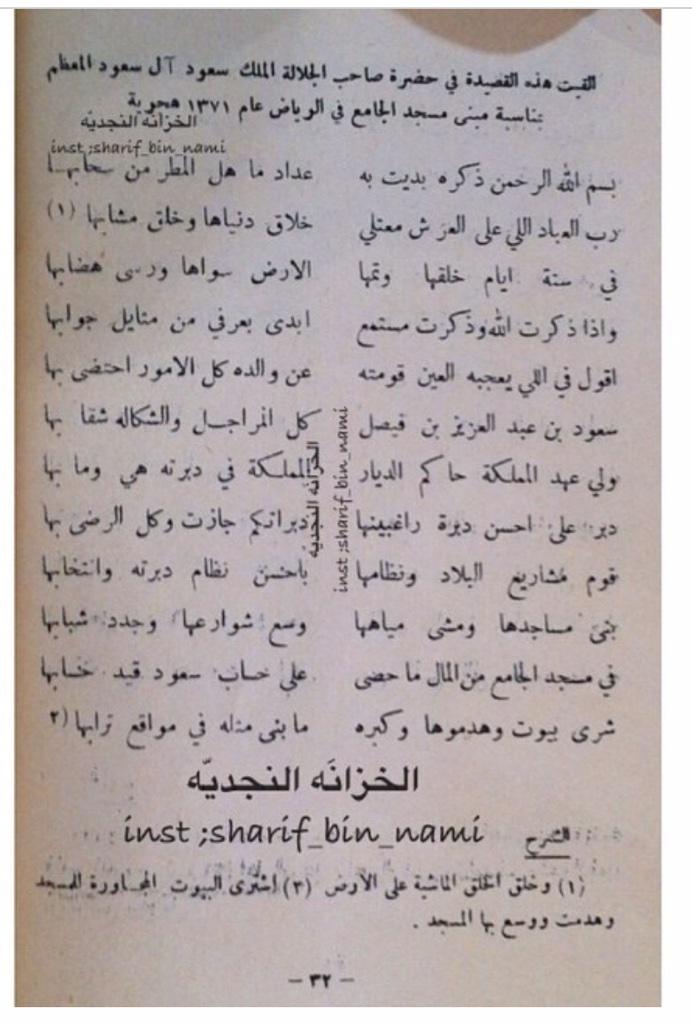 القيت هذه القصيدة في حضرة صاحب الجلالة الملك سعود آل سعود المعظم
بمناسبة مبنى مسجد الجامع في الرياض عام ١٣٧١ هجرية
الخزانه النجديّه
inst ;sharif_bin_nami
بسم الله الرحمن ذكره بديت به عداد ما هل المطر من سحابها
رب العباد اللي على العرش معتلي خلاق دنياها وخلق مشابها (١)
في ستة ايام خلقها وتمها الارض سواها ورسى هضابها
واذا ذكرت الله وذكرت مستمع ابدى بعرفي من مثايل جوابها
اقول في اللي يعجبه العين قومته عن والده كل الامور احتضى بها
سعود بن عبد العزيز بن فيصل كل المراجل والشكاله شفا بها
ولي عهد المملكة حاكم الديار المملكة في دبرته هي وما بها
دبر على احسن ديرة راغبينها دبراتكم جازت وكل الرضى بها
قوم مشاريع البلاد ونظامها باحسن نظام دبرته وانتخابها
بنى مساجدها ومشى مياهها وسع شوارعها وجدد شبابها
في مسجد الجامع من المال ما حضى على حساب سعود قيد حسابها
شرى بيوت وهدموها وكبره ما بنى مثله في مواقع ترابها (٢
الخزانه النجديّه
inst ;sharif_bin_nami
الخزانَه النجديّه
inst ;sharif_bin_nami
الشرح
(١) وخلق الخلق الماشية على الأرض (٢) اشترى البيوت المجاورة للمسجد
وهدمت ووسع بها المسجد .
– ٣٢ –